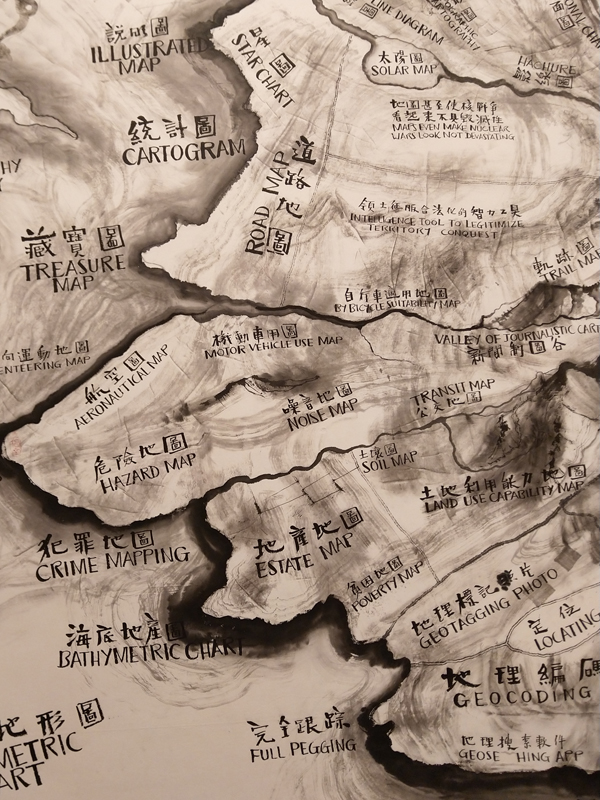 說明圖
ILLUSTRATED
MAP
LINE DIAGRAM
星圖
STAR CHART
太陽圖
SOLAR MAP
HACHURE
統計圖
CARTOGRAM
地圖甚至使核戰爭
看起來不具毀滅性
MAPS EVEN MAKE NUCLEAR
WARS LOOK NOT DEVASTATING
道路地圖
ROAD MAP
領土征服合法化的智力工具
INTELLIGENCE TOOL TO LEGITIMIZE
TERRITORY CONQUEST
藏寶圖
TREASURE
MAP
軌跡圖
TRAIL MAP
自行車適用地圖
BY BICYCLE SUITABILITY MAP
機動車用圖
MOTOR VEHICLE USE MAP
VALLEY OF JOURNALISTIC CART
新聞製圖谷
向運動地圖
ENTEERING MAP
航空圖
AERONAUTICAL MAP
噪音地圖
NOISE MAP
TRANSIT MAP
公交地圖
危險地圖
HAZARD MAP
土壤圖
SOIL MAP
土地利用能力地圖
LAND USE CAPABILITY MAP
犯罪地圖
CRIME MAPPING
地產地圖
ESTATE MAP
貧困地圖
POVERTY MAP
地理標記片
GEOTAGGING PHOTO
定位
LOCATING
海底地產圖
BATHYMETRIC CHART
地理編碼
GEOCODING
地形圖
METRIC
ART
完全跟踪
FULL PEGGING
地理搜索軟件
GEOSE HING APP